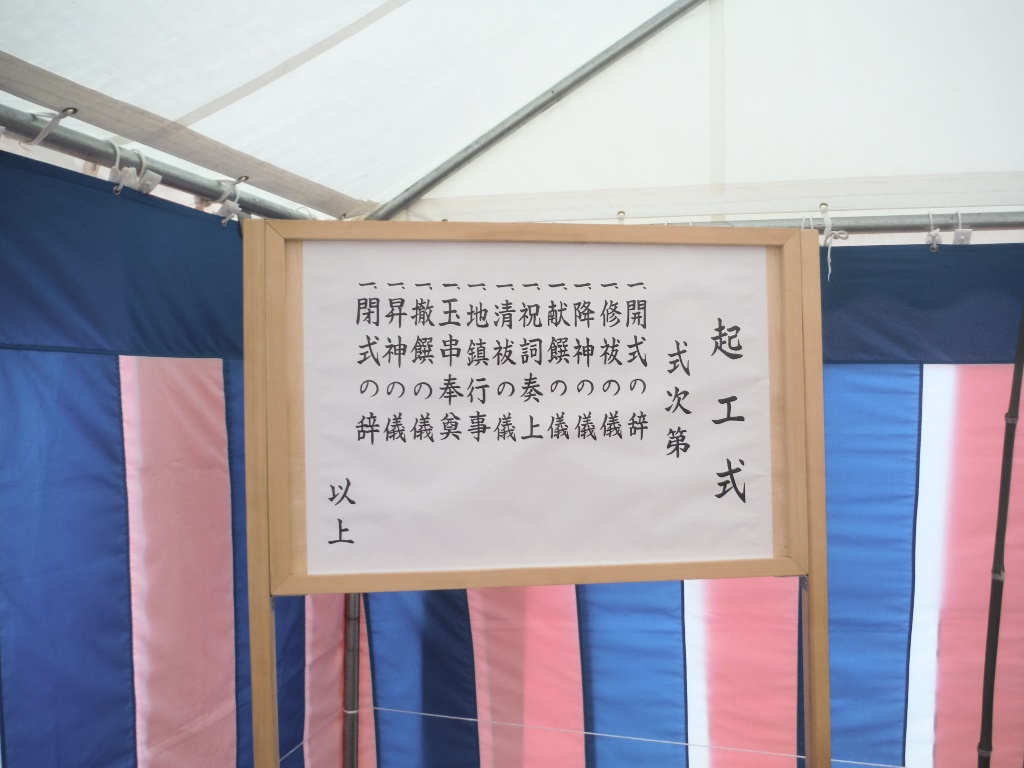 起工式
式次第
一、開式の辞
一、修祓の儀
一、降神の儀
一、献饌の儀
一、祝詞奏上
一、清祓の儀
一、地鎮行事
一、玉串奉奠
一、撤饌の儀
一、昇神の儀
一、閉式の辞
以上